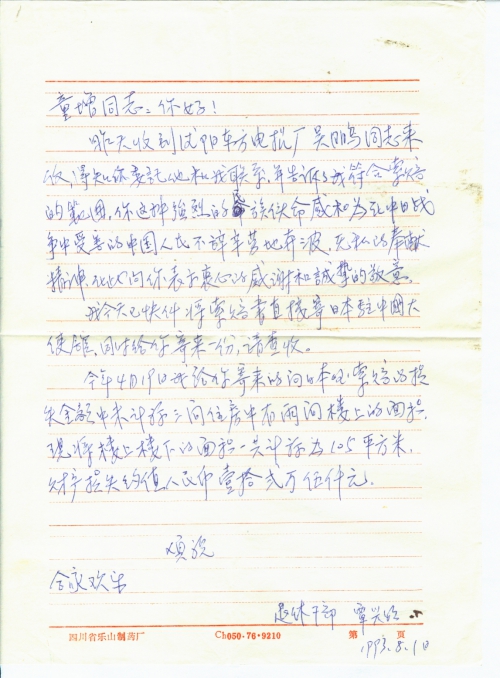 童增同志：你好！
昨天收到沈阳东方电扳厂吴鸣同志来
信，得知你委托他和我联系，并告诉了我符合索赔
的范围，你这种强烈的民族使命感和为死中日战
争中受害的中国人民不辞辛苦地奔波，无私的奉献
精神，在此向你表示衷心的感谢和誠挚的敬意。
我今天已快件将索赔书直接寄日本駐中國大
使馆，同时给你寄来一份，请查收。
今年4月19日我给你寄来的向日本国索赔的损
失金额中未计称三间住房中有两间楼上的面积
现将楼上楼下的面积一共计称为105平方米，
财产损失约值人民币壹拾贰万伍仟元。
顺祝
合家欢乐
退休干部 覃兴
1993.5.1日
四川省乐山制药厂 Ch050·76·9210 第 页